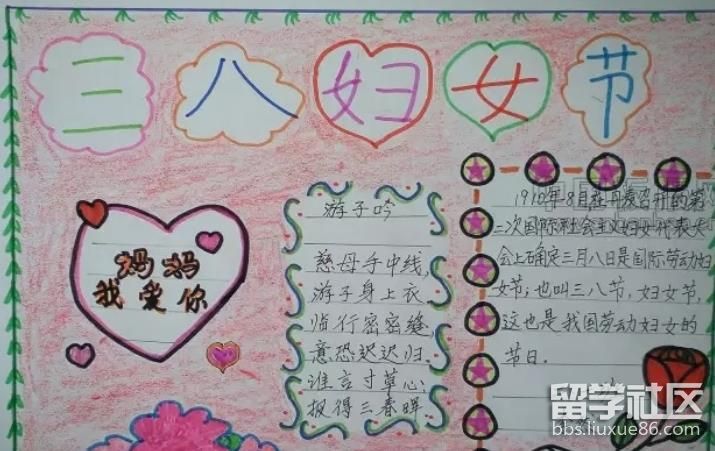 三八妇女节
妈妈
我爱你
游子吟
慈母手中线,
游子身上衣.
临行密密缝,
意恐迟迟归.
谁言寸草心
报得三春晖.
1910年8月在丹麦召开的第
二次国际社会主义妇女代表大
会上确定三月八日是国际劳动妇
女节;也叫三八节,妇女节,
这也是我国劳动妇女的
节日.
留学社区
bbs.liuxue86.com